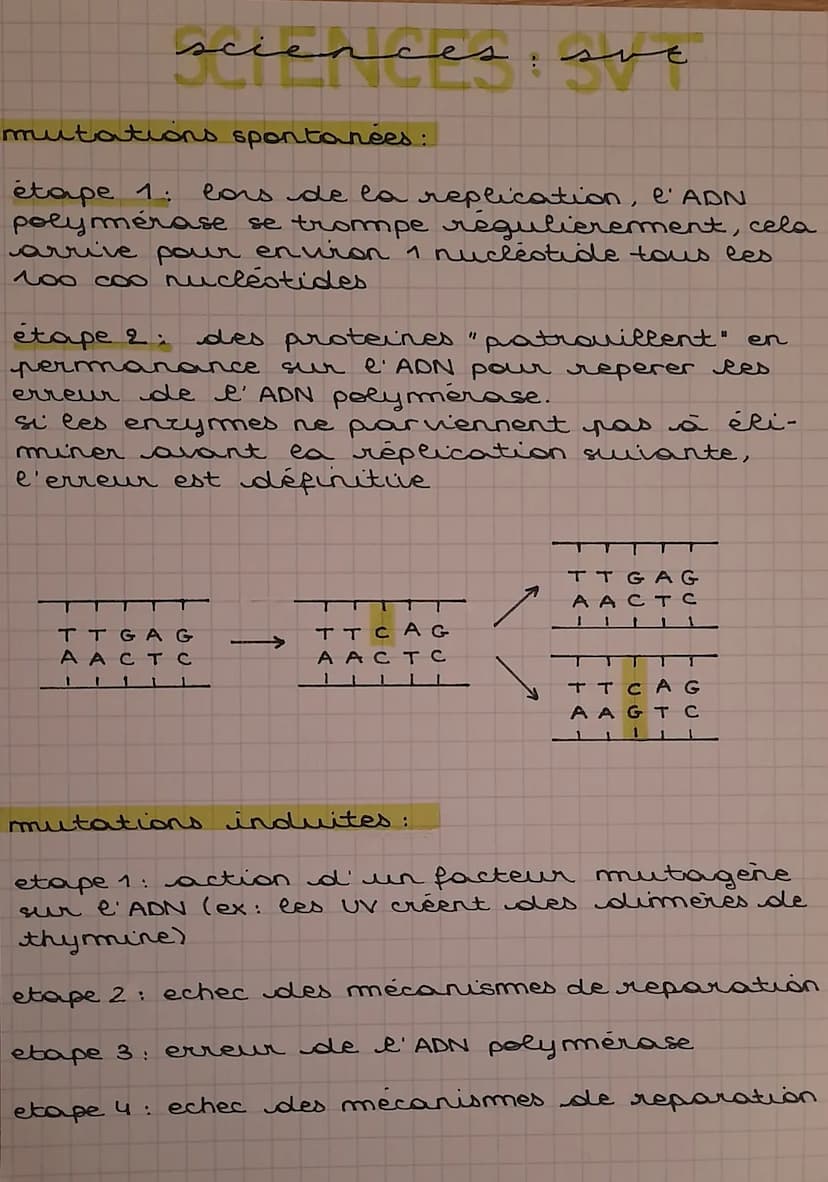 SCIENCES : SVT
sciences : svt
mutations spontanées :
étape 1 : lors de la replication, l'ADN
polymérase se trompe régulierement, cela
arrive pour environ 1 nucléotide tous les
100 000 nucléotides
étape 2 : des proteines "patrouillent" en
permanance sur l'ADN pour reperer les
erreur de l'ADN polymérase.
si les enzymes ne parviennent pas à éli-
miner avant la réplication suivante,
l'erreur est définitive
T T G A G
A A C T C
T T G A G
A A C T C
T T C A G
A A C T C
T T C A G
A A G T C
mutations induites :
etape 1 : action d'un facteur mutagène
sur l'ADN (ex : les UV créent des dimères de
thymine)
etape 2 : echec des mécanismes de reparation
etape 3 : erreur de l'ADN polymérase
etape 4 : echec des mécanismes de reparation